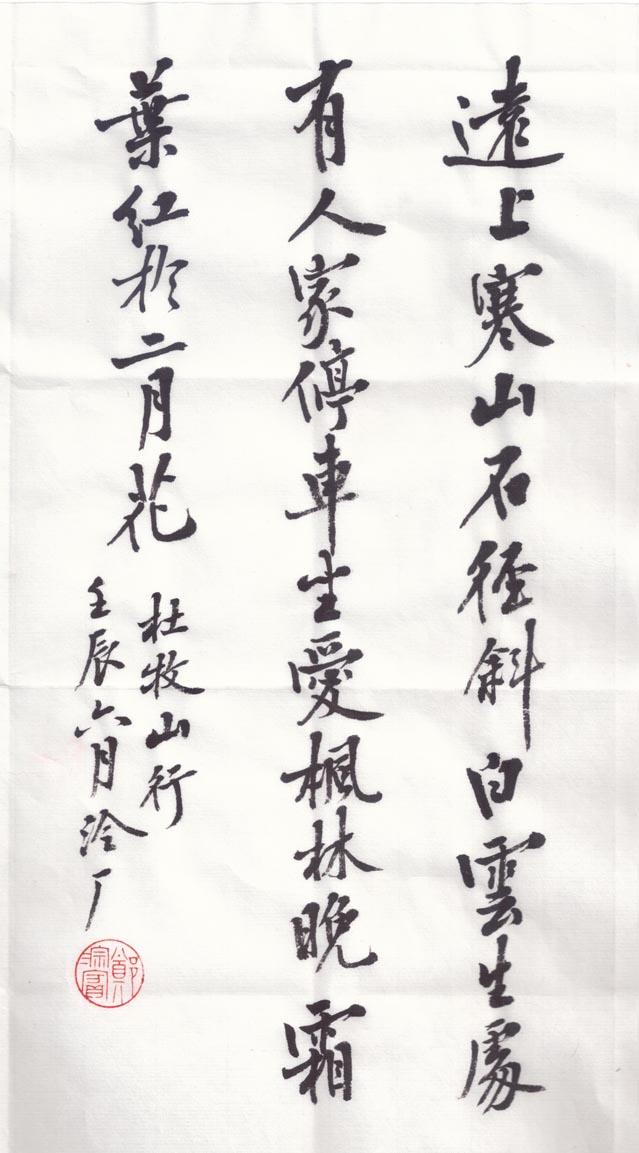 遠上寒山石徑斜白雲生處
有人家停車坐愛楓林晚霜
葉紅於二月花
杜牧山行
壬辰六月泠厂